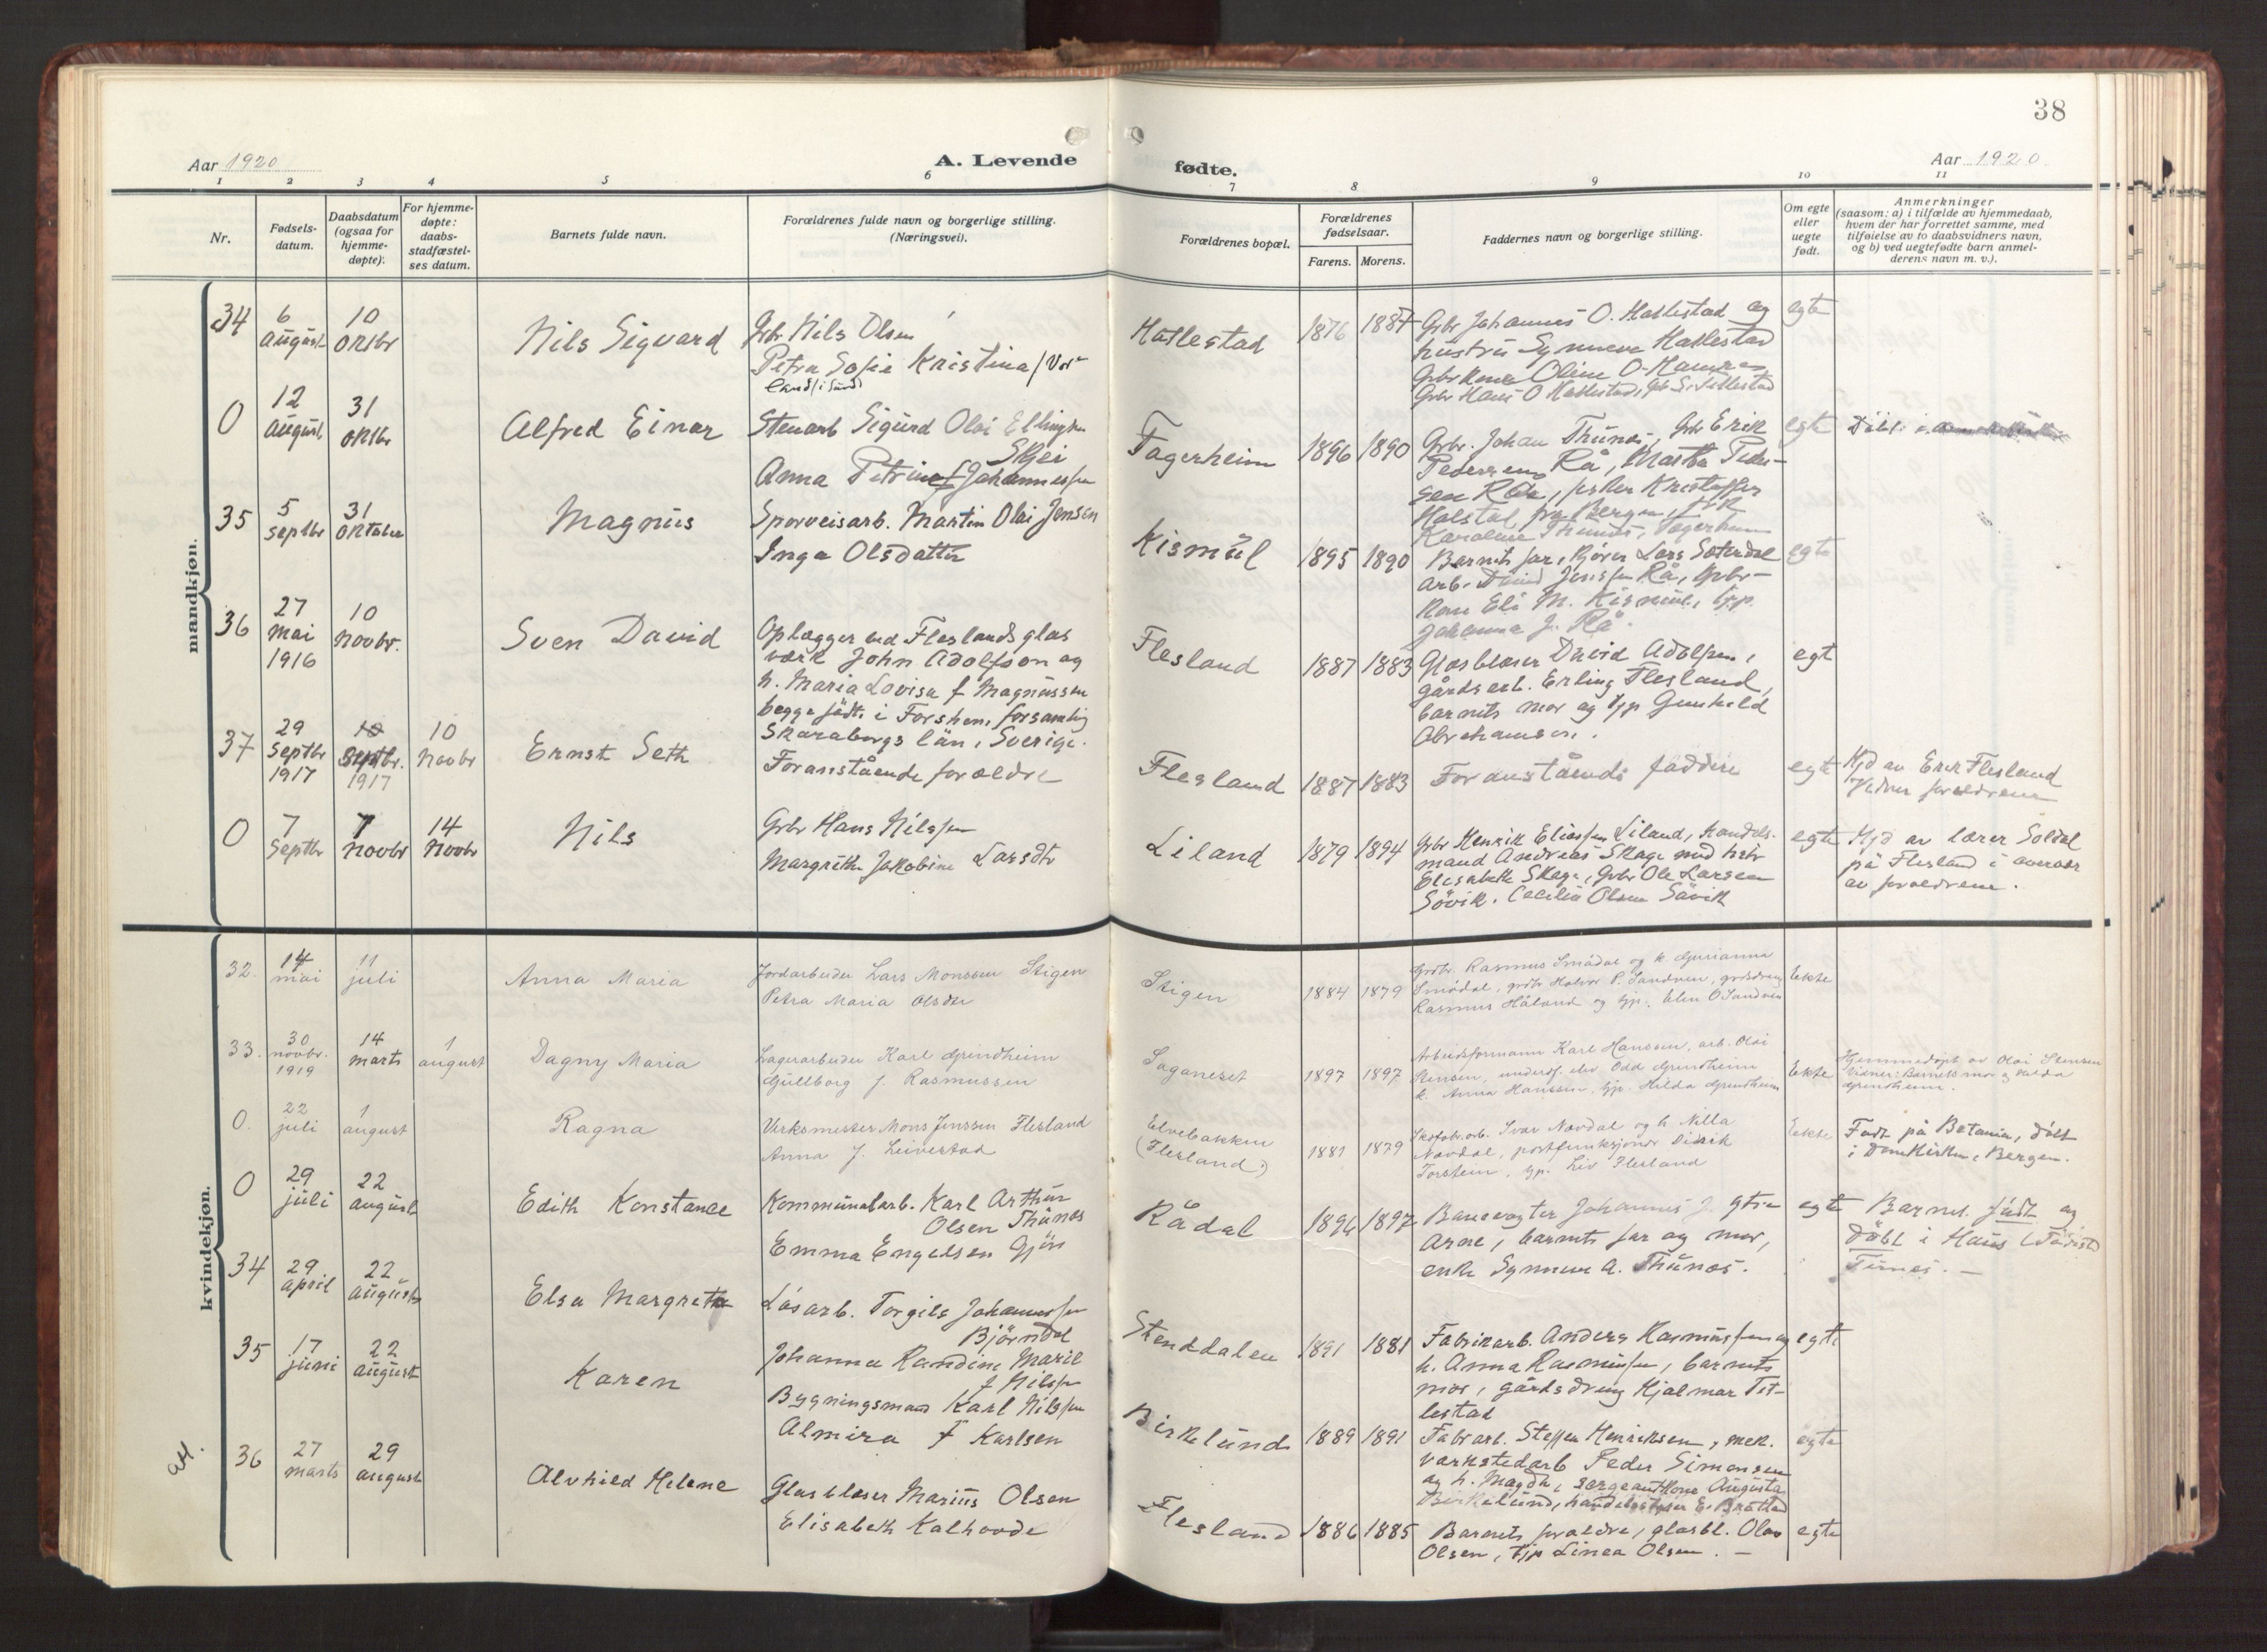 38
Aar 1920
A. Levende
fødte.
Aar 1920
1 2 3 4 5 6 7 8 9 10 11
Nr.
Fødsels-
datum.
Daabsdatum
(ogsaa for
hjemme-
døpte).
For hjemme-
døpte:
daabs-
stadfæstel-
ses datum.
Barnets fulde navn.
Forældrenes fulde navn og borgerlige stilling.
(Næringsvei).
Forældrenes bopæl.
Forældrenes
fødselsaar.
Farens. Morens.
Faddernes navn og borgerlige stilling.
Om egte
eller
uegte
født.
Anmerkninger
(saasom: a) i tilfælde av hjemmedaab,
hvem der har forrettet samme, med
tilføielse av to daabsvidners navn,
og b) ved uegtefødte barn anmel-
derens navn m. v.).
mandkjøn.
34
6
august
10
oktbr
Nils Sigvard
Grbr Nils Olsen
Petra Sofie Kristina
Hatlestad
1876 1887
Grbr Johannes O. Hatlestad og
hustru Synneve Hatlestad
Oline O.
Grbr Hans O Hatlestad,
egte
0
12
august
31
oktbr
Alfred Einar
Stenarb Sigurd Olai Ellingsen
Skjei
Anna Petrine f Johannessen
Fagerheim
1896 1890
Grbr. Johan Thunes, Grb Erik
Pedersen Rå, Marta Peder-
sen Rå, Kristoffer
fra Bergen,
Karoline Thunes, Fagerheim
egte
Döbt i
35
5
septbr
31
oktober
Magnus
Sporveisarb. Martin Olai Jensen
Inga Olsdatter
Kismül
1895 1890
Barnets far, Lars Sæterdal
arb. Jenssen Rå, Grbr-
kone Eli M. Kismül, tjp.
Johanna J. Rå.
egte
36
27
mai
1916
10
Novbr.
Sven David
Oplægger ved Fleslands glas
værk John Adolfson og
h. Maria Lovisa f Magnussen
begge født i Forshem, forsamling
Skaraborgs län, Sverige.
Flesland
1887 1883
Glasblæser David Adolfsen,
gårdsarb. Erling Flesland,
barnets mor og tjp Gunhild
Abrahamsen.
egt
37
29
Septbr
1917
10
Septbr.
1917
10
Novbr
Ernst Seth
Foranstående forældre
Flesland
1887 1883
Foranstående faddere
egte
Hjd av Erik Flesland
Vidner forældrene
0
7
Septbr
7
Novbr
14
Novbr
Nils
Grbr Hans Nilssen
Margrethe Jakobine Larsdtr
Liland
1879 1894
Grbr Henrik Eliassen Liland, handels-
mand Andreas Skage med hstr
Elisabeth Skage, Grbr Ole Larsen
Sövik. Cecilia Olsen Sövik
egte
Hjd av lærer Soldal
på Flesland i overvær
av forældrene.
kvindekjøn.
32.
14
mai
11
juli
Anna Maria
Jordarbeider Lars Monssen Stigen
Petra Maria Olsdtr
Stigen
1884 1879
Grdbr. Rasmus Smådal og h. Gurianna
Smådal, grdbr Halvor P. Sandven, grdsdreng
Rasmus Håland og tjp. Elen O Sandven
Ekte
33.
30
novbr.
1919
14
marts
1
august
Dagny Maria
Lagerarbeider Karl Grindheim
Gullborg f. Rasmussen
Saganeset
1897 1897
Arbeidsformann Karl Hanssen, arb. Olai
Stensen, elev Odd Grindheim
k. Anna Hanssen, tjp. Hilda Grindheim
Ekte
Hjemmedøpt av Olai Stensen
Vidner: Barnets mor og Hilda
Grindheim.
0.
22
juli
1
august
Ragna
Verksmester Mons Jenssen Flesland
Anna f. Leivestad
Elvebakken
(Flesland)
1881 1879
Skofabr.arb. Ivar Nævdal og h. Nilla
Nævdal, postfunksjonær Didrik
Torstein, tjp. Liv Flesland
Ekte
Født på Betania, döbt
i Domkirken, Bergen.
0
29
juli
22
august
Edith Konstanse
Kommunalarb. Karl Arthur
Olsen Thunes
Emma Engelsen Gjön
Rådal
1896 1897
Banevogter Johannes J.
Arne, barnets far og mor,
enke Synneve A. Thunes.
egte
Barnet födt og
döbt i Haus
34
29
april
22
august
Elsa Margrete
Låsarb. Torgils Johannessen
Björndal
Johanna Randine Marie
f Nilssen
Stenddalen
1891 1881
Fabrikarb. Anders Rasmussen og
h. Anna Rasmussen, barnets
mor, gårdsdreng Hjalmar Tit-
lestad
egte
35
17
juni
22
august
Karen
Bygningsmand Karl Nilssen
Almira f Karlsen
Birkelund
1889 1891
Fabrarb. Steffen Henriksen, mek.
verkstedarb Peder Simonsen
og h. Magda, sergeantkone Augusta
Birkelund,
egte
36
27
marts
29
august
Alvhild Helene
Glasblæser Marius Olsen
Elisabeth Kalhovde
Flesland
1886 1885
Barnets forældre, glasbl. Olav
Olsen, tjp Linea Olsen. —
egte